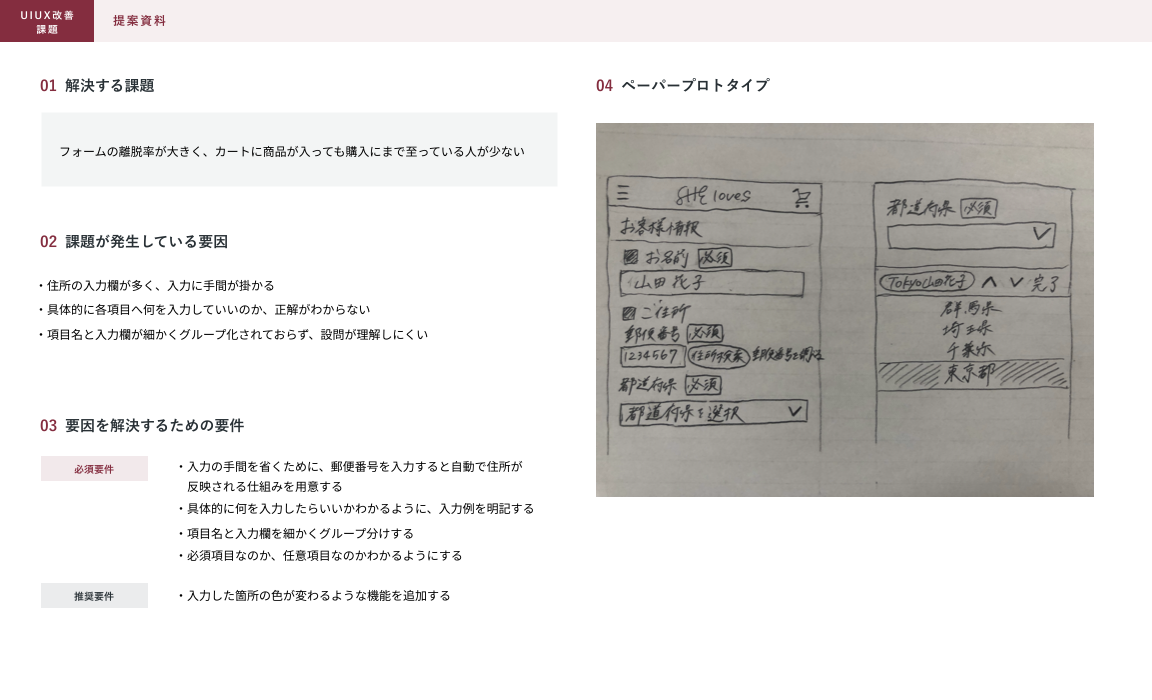 UIUX改善
課題
提案資料
01 解決する課題
フォームの離脱率が大きく、カートに商品が入っても購入にまで至っている人が少ない
02 課題が発生している要因
・住所の入力欄が多く、入力に手間が掛かる
・具体的に各項目へ何を入力していいのか、正解がわからない
・項目名と入力欄が細かくグループ化されておらず、設問が理解しにくい
03 要因を解決するための要件
必須要件
・入力の手間を省くために、郵便番号を入力すると自動で住所が
反映される仕組みを用意する
・具体的に何を入力したらいいかわかるように、入力例を明記する
・項目名と入力欄を細かくグループ分けする
・必須項目なのか、任意項目なのかわかるようにする
推奨要件
・入力した箇所の色が変わるような機能を追加する
04 ペーパープロトタイプ
SHE loves
お客様情報
お名前 必須
山田花子
ご住所
郵便番号 必須
1234567 住所検索 郵便番号を調べる
都道府県 必須
都道府県を選択
都道府県 必須
Tokyo山田花子 完了
群馬県
埼玉県
千葉県
東京都